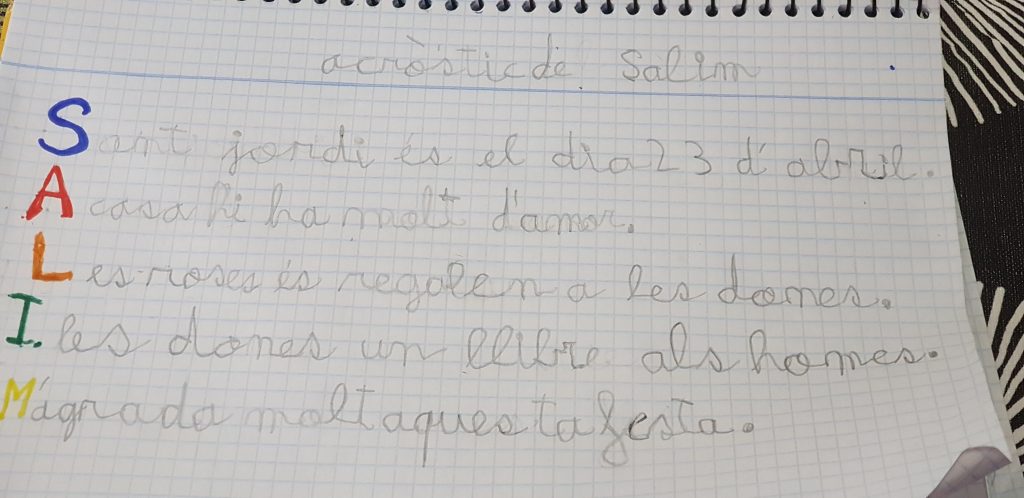 acròstic de Salim
Sant jordi és el dia 23 d'abril.
A casa hi ha molt d'amor.
Les roses és regalen a les dones.
I. les dones un llibre als homes.
M'agrada molt aquesta festa.